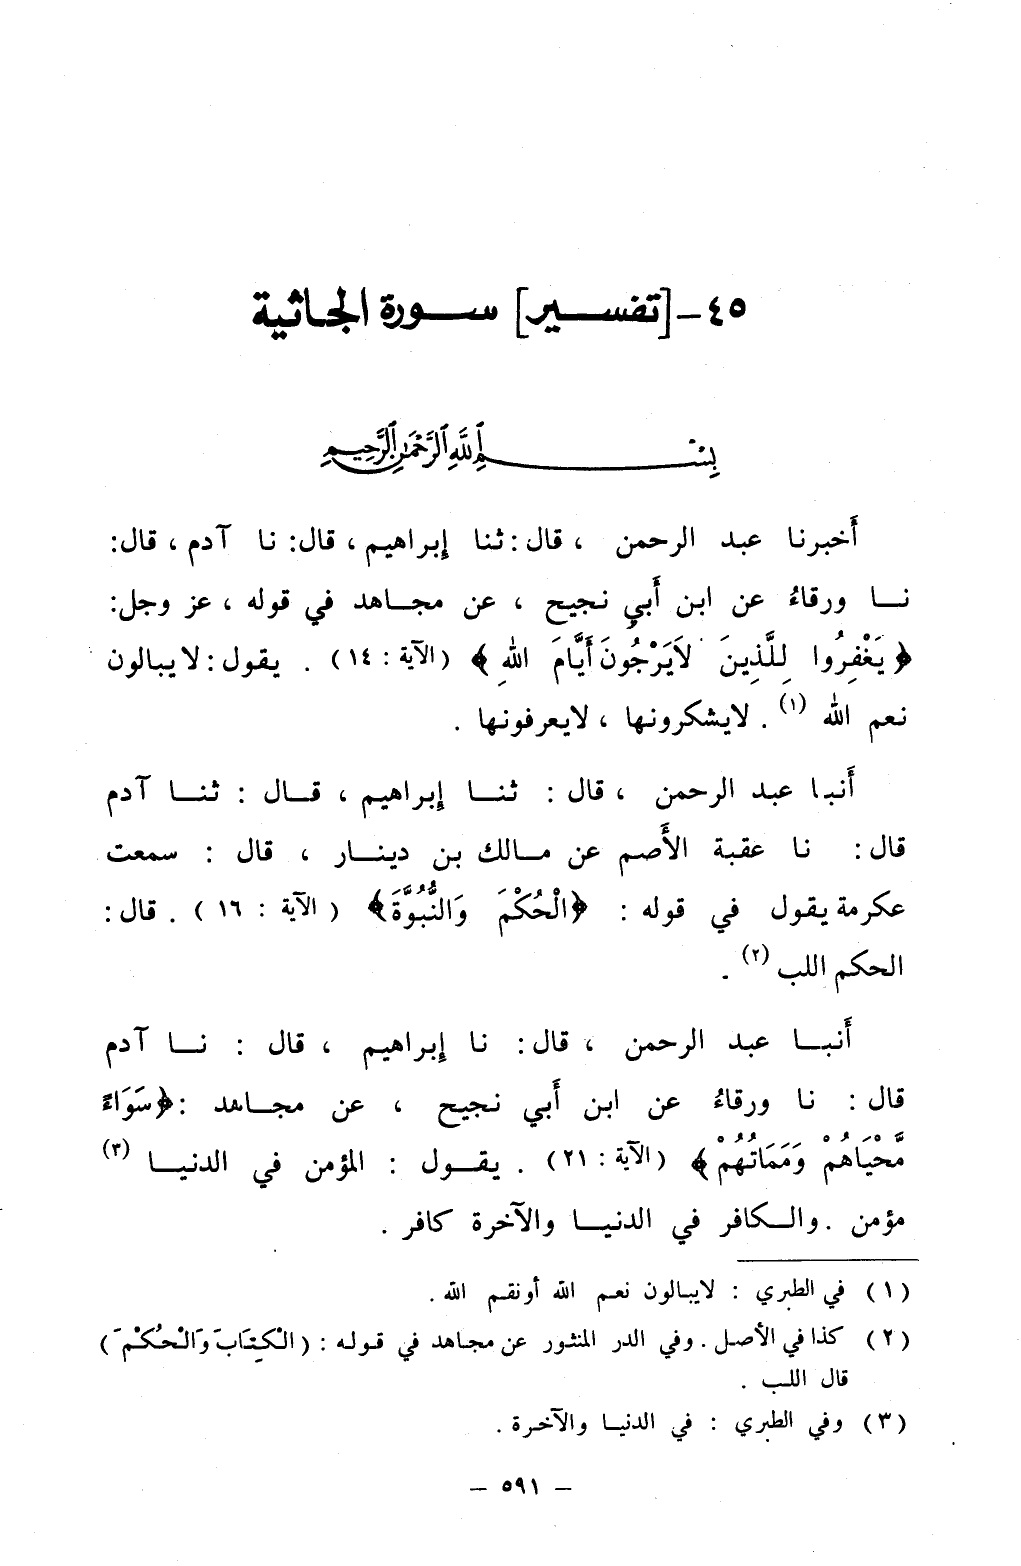 ٤٥ - [تفسير] سورة الجاثية
بِسْمِ اللَّهِ الرَّحْمَٰنِ الرَّحِيمِ
أَخبرنا عبد الرحمن ، قال : ثنا إبراهيم ، قال: نا آدم ، قال:
نا ورقاءُ عن ابن أَبي نجيح ، عن مجاهد في قوله ، عز وجل:
﴿ يَغْفِرُوا لِلَّذِينَ لاَيَرْجُونَ أَيَّامَ اللهِ ﴾ (الآية : ١٤) . يقول : لايبالون
نعم الله (١) . لايشكرونها ، لايعرفونها .
أَنبا عبد الرحمن ، قال : ثنا إبراهيم ، قال : ثنا آدم
قال : نا عقبة الأَصم عن مالك بن دينار ، قال : سمعت
عكرمة يقول في قوله : ﴿الْحُكْمَ وَالنُّبُوَّةَ﴾ ( الآية : ١٦ ) . قال :
الحكم اللب (٢) .
أَنبا عبد الرحمن ، قال : نا إبراهيم ، قال : نا آدم
قال : نا ورقاءُ عن ابن أَبي نجيح ، عن مجاهد : ﴿سَوَاءً
مَّحْيَاهُمْ وَمَمَاتُهُمْ﴾ (الآية : ٢١) . يقول : المؤمن في الدنيا (٣)
مؤمن . والكافر في الدنيا والآخرة كافر .
(١) في الطبري : لايبالون نعم الله أونقم الله .
(٢) كذا في الأصل . وفي الدر المنثور عن مجاهد في قوله : (الْكِتَابَ وَالْحُكْمَ)
قال اللب .
(٣) وفي الطبري : في الدنيا والآخرة .
– ٥٩١ –